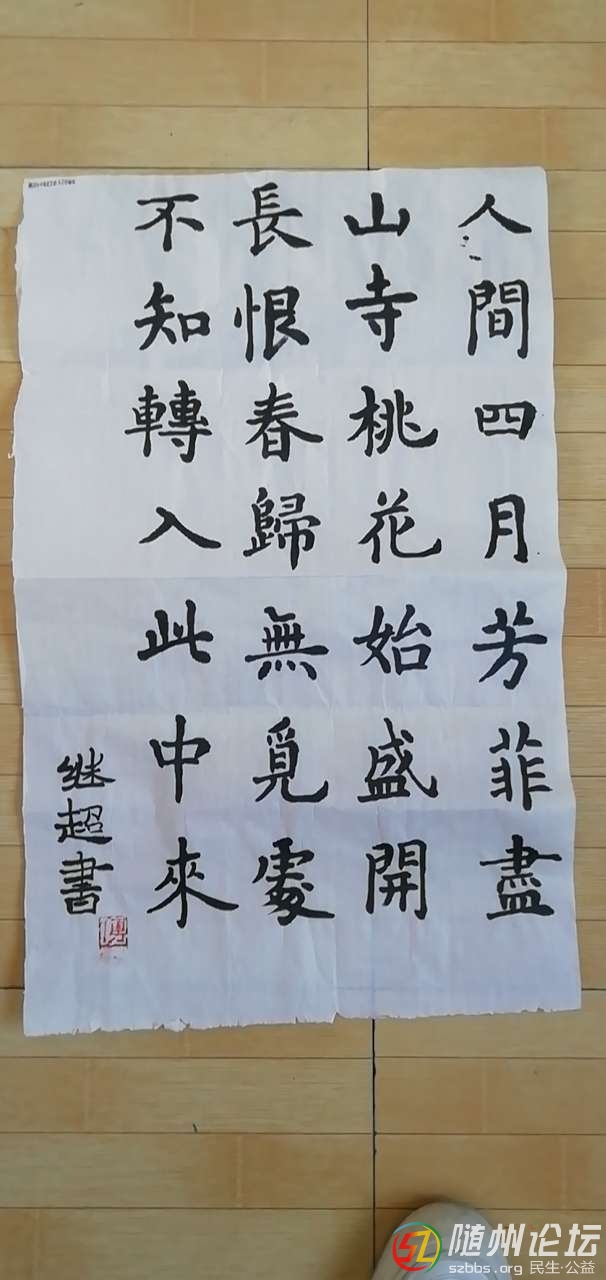 人間四月芳菲盡
山寺桃花始盛開
長恨春歸無覓處
不知轉入此中來
继超書
随州论坛
szbbs.org 民生·公益